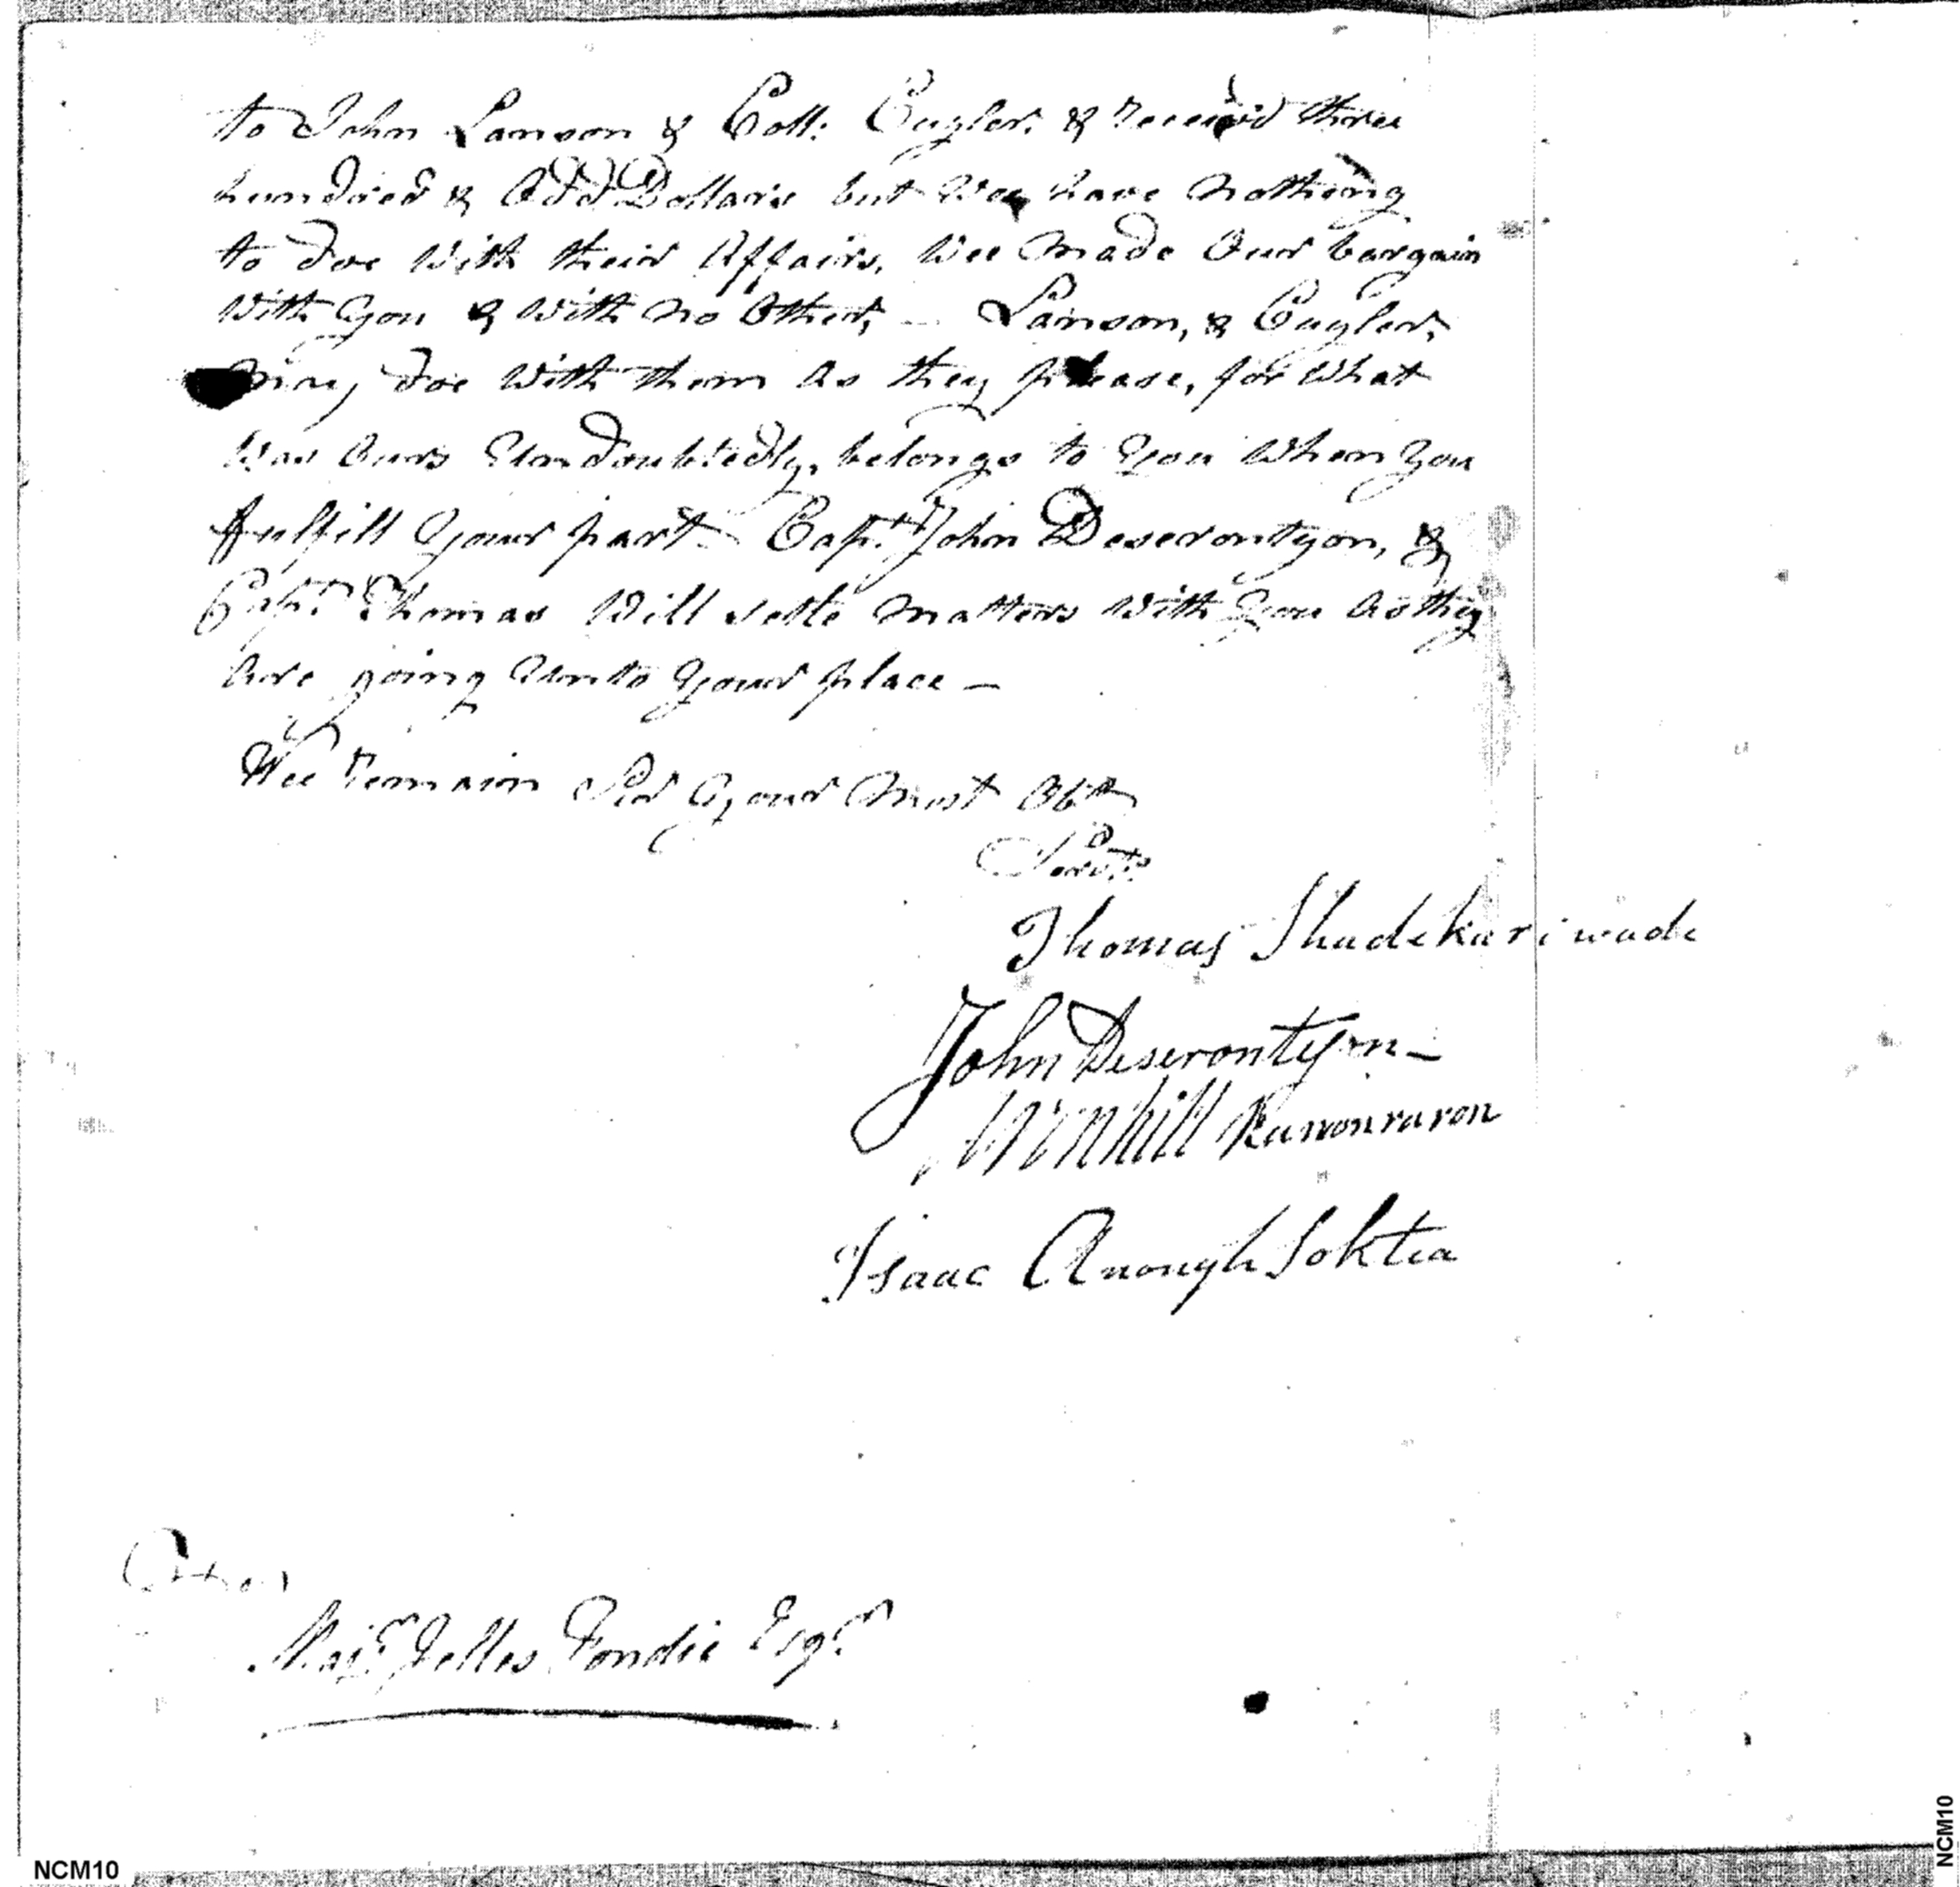 to John Lanson & Coll: Cugler. & Received three
hundred & Odd Dollars but Wee have Nothing
to doe With their Affairs, Wee Made Our bargain
With you & With no Other, – Lanson, & Cugler,
may doe With them as they please, for What
Was Ours Undoubtedly, belongs to you When you
fulfill your part – Capt. John Deserontyon, &
Capt. Thomas Will setle Matters With you As they
Are going Unto your place –
Wee Remain Sir your Most Obt
Servts.
Thomas Shadekariwade
John Deserontyon –
Wm hill Kanonraron
Isaac AnoughSoktea
Majr. Jelles Fondie Esqr.
NCM10
NCM10